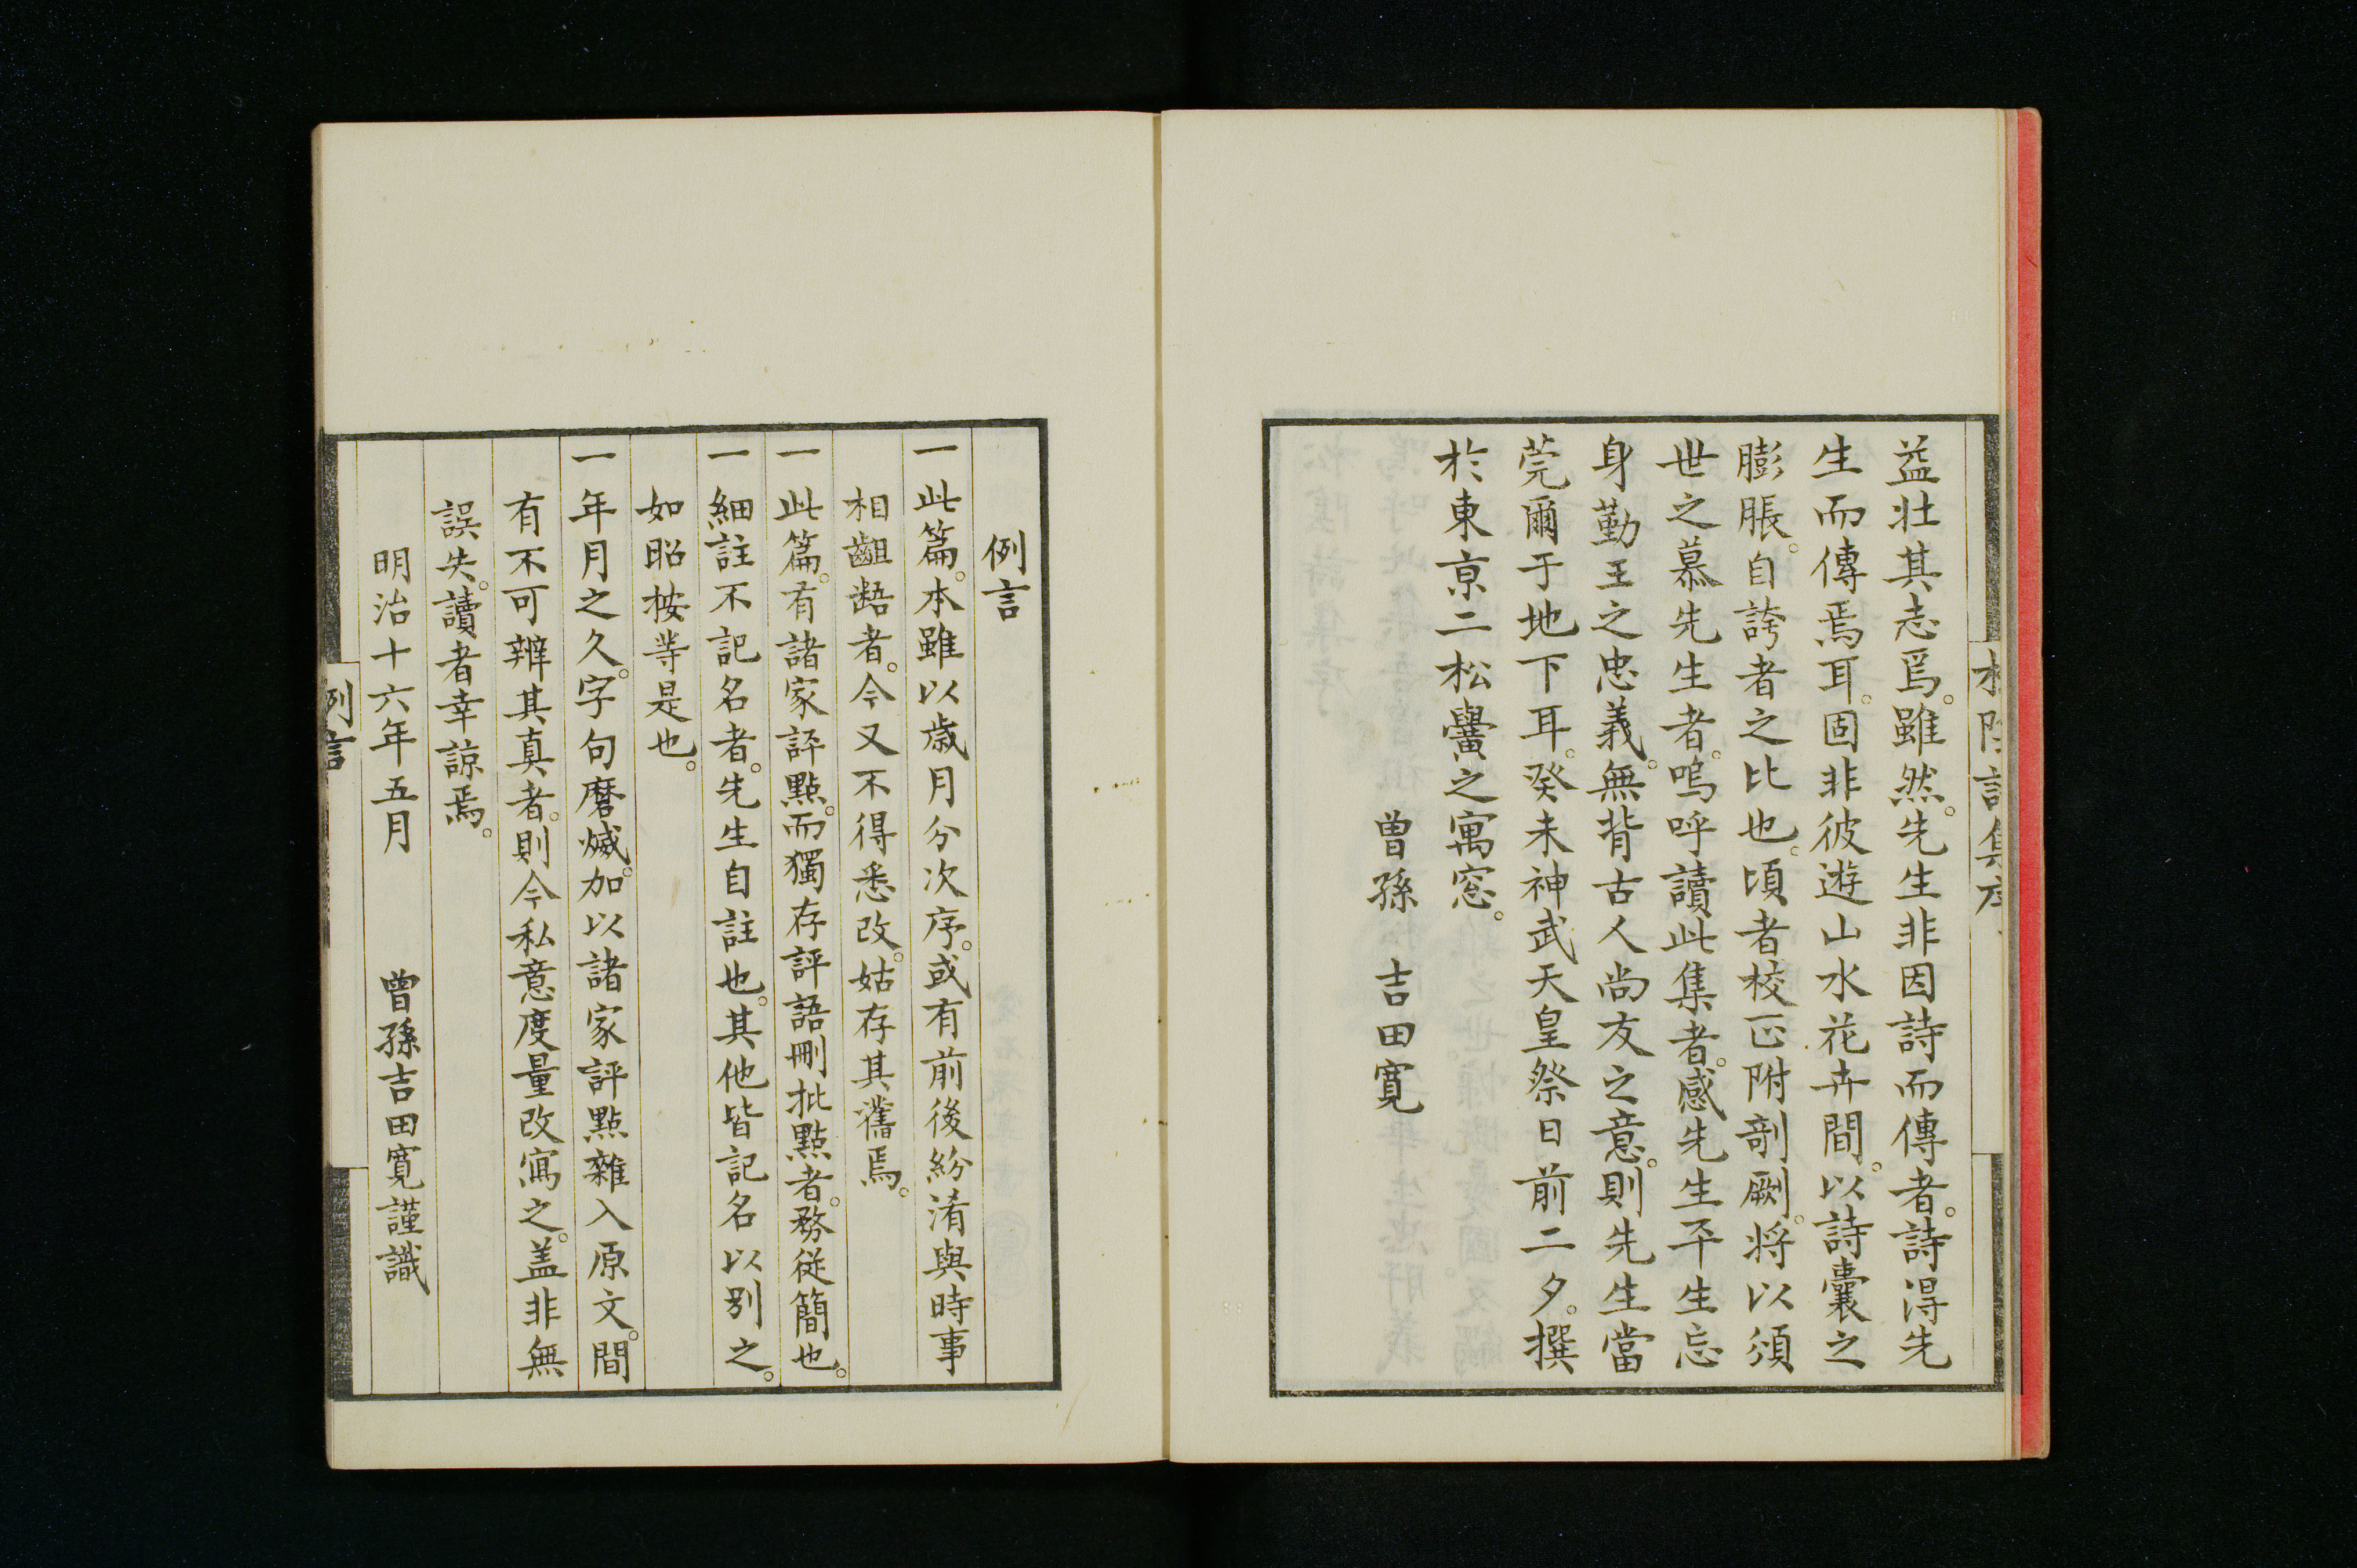 益壯其志焉。雖然。先生非因詩而傳者。詩得先
生而傳焉耳。固非彼遊山水花卉間。以詩囊之
膨脹。自誇者之比也。頃者校正附剞劂。将以須
世之慕先生者。嗚呼讀此集者。感先生平生忘
身勤王之忠義。無背古人尚友之意。則先生當
莞爾于地下耳。癸未神武天皇祭日前二夕。撰
於東亰二松黌之寓窓。
曽孫 吉田寛
例言
一此篇。本雖以歳月分次序。或有前後紛淆與時事
相齟齬者。今又不得悉改。姑存其舊焉。
一此篇。有諸家評點。而獨存評語刪批點者。務従簡也。
一細註不記名者。先生自註也。其他皆記名以別之。
如昭按等是也。
一年月之久。字句磨滅。加以諸家評點雜入原文。間
有不可辨其真者。則今私意度量改寫之。盖非無
誤失。讀者幸諒焉。
明治十六年五月 曽孫吉田寛謹識
例言